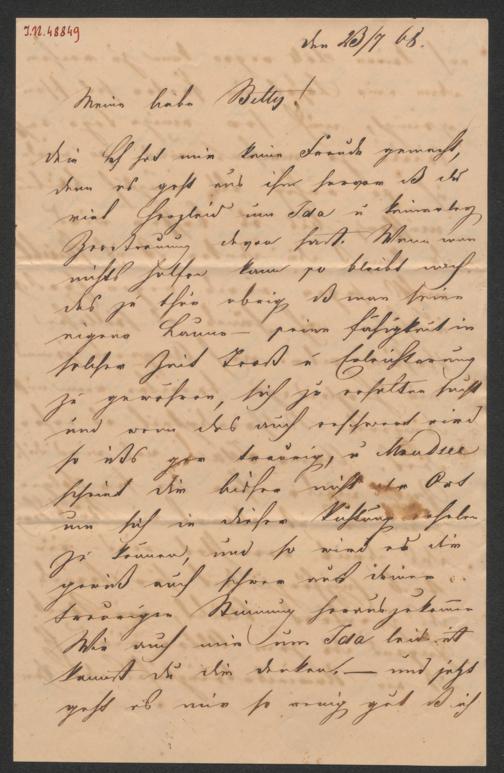 I.N. 48849
den 23/7 68.
Meine liebe Betty!
dein Bf hat mir keine Freude gemacht,
denn es geht aus ihm hervor dß du
viel Herzleid um Ida u keinerley
Zerstreuung davon hast. Wenn man
nichts helfen kann so bleibt noch
das zu thun übrig dß man seine
eigene Laune – seine Fähigkeit in
solcher Zeit Trost u Erleichterung
zu gewähren, sich zu erhalten sucht
und wenn das auch erschwert wird
so ists gar traurig, u Mondsee
scheint dir bisher nicht der Ort
um sich in dieser Richtung erholen
zu können, und so wird es dir
gewiß auch schwer aus deiner
traurigen Stimmung herauszukommen
Wie auch mir um Ida leid ist
kannst du dir denken, – und jetzt
geht es mir so wenig gut dß ich